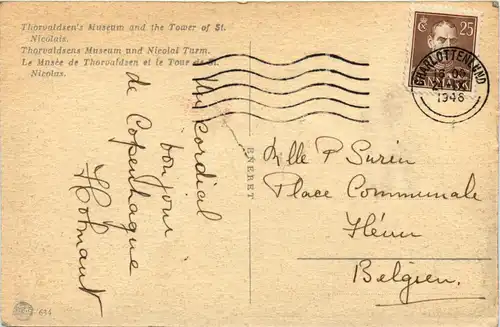 Thorvaldsen's Museum and the Tower of St.
Nicolais.
Thorvaldsens Museum und Nicolai Turm.
Le Musée de Thorvaldsen et le Tour de St.
Nicolas.
25
CHARLOTTENLUND
1946
ENERET
Un cordial
bonjour
de Copenhague
Mlle P Surin
Place Communale
Belgien.